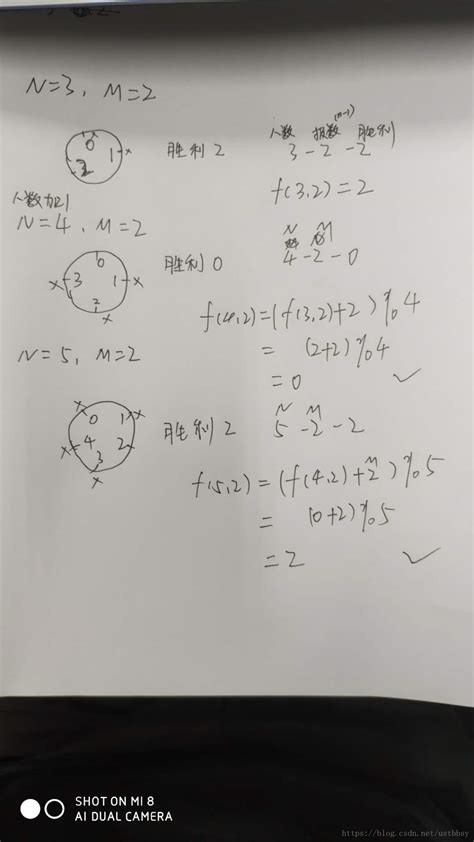 N=3, M=2
0 1 2
胜利 2
人数 报数 (n-1) 胜利
3 - 2 - 2
f(3,2)=2
人数加1
N=4, M=2
0 1 2 3
胜利 0
N M
4 - 2 - 0
f(4,2)=(f(3,2)+2)%4
= (2+2)%4
= 0 ✓
N=5, M=2
0 1 2 3 4
胜利 2
N M
5 - 2 - 2
M
f(5,2)=(f(4,2)+2)%5
= (0+2)%5
= 2 ✓
SHOT ON MI 8
AI DUAL CAMERA
https://blog.csdn.net/ustbbsy